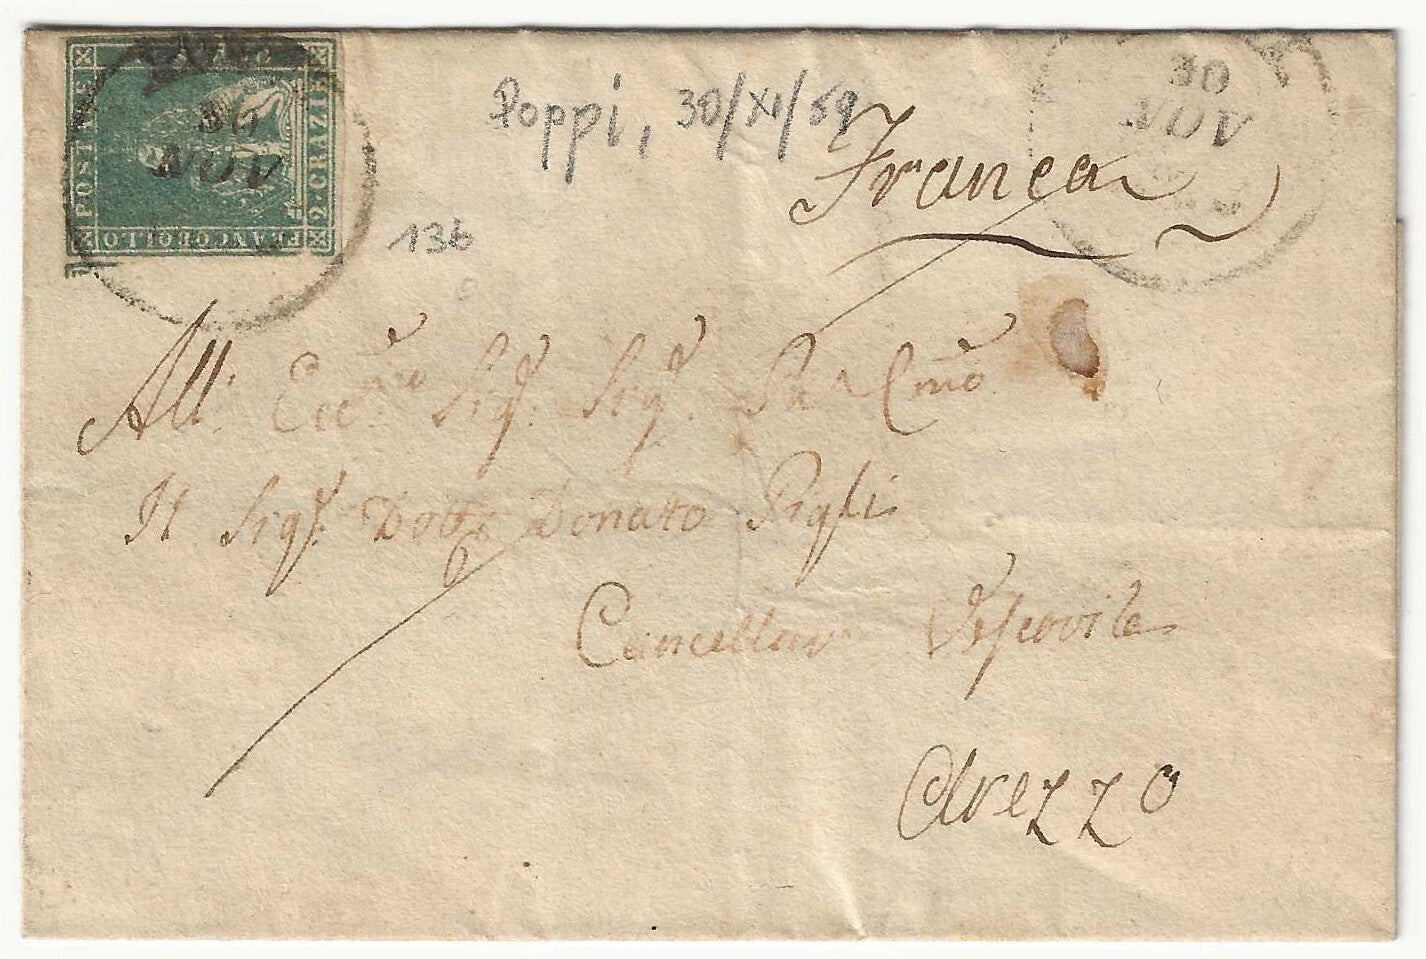 FRANCOBOLLO
POSTALE
2·GRAZIE
30
NOV
30
NOV
Poppi, 30/XI/59
Franca
13b
All. Ecc.mo Sig. Sig. Cmõ
Il Sig. Dott. Donato Pigli
Cancellier Vescovile
Arezzo